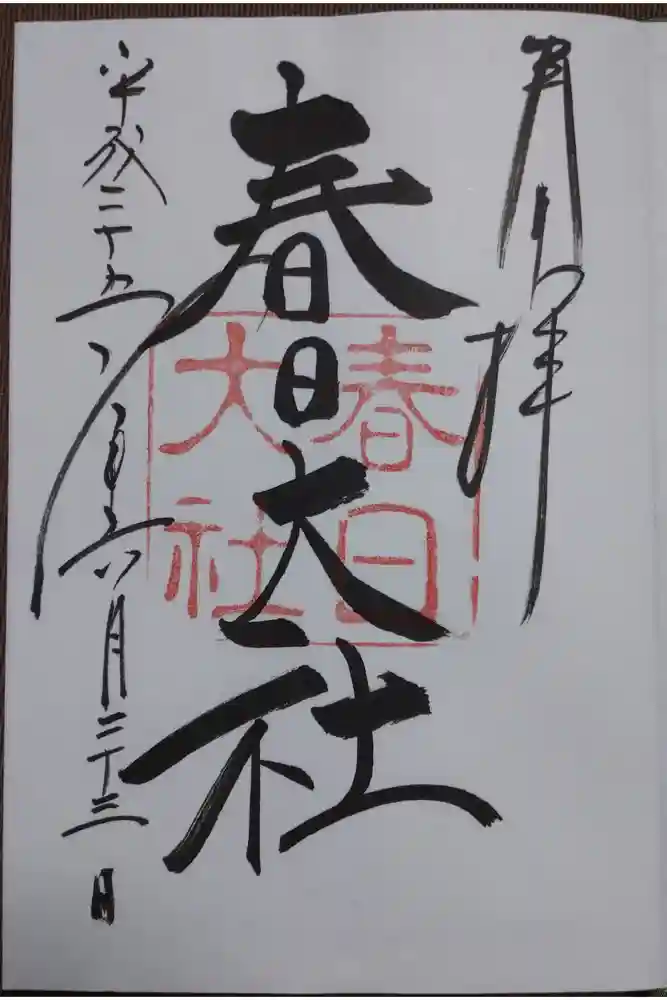 拝
春日大社
平成二十五年六月二十三日
春日
大社